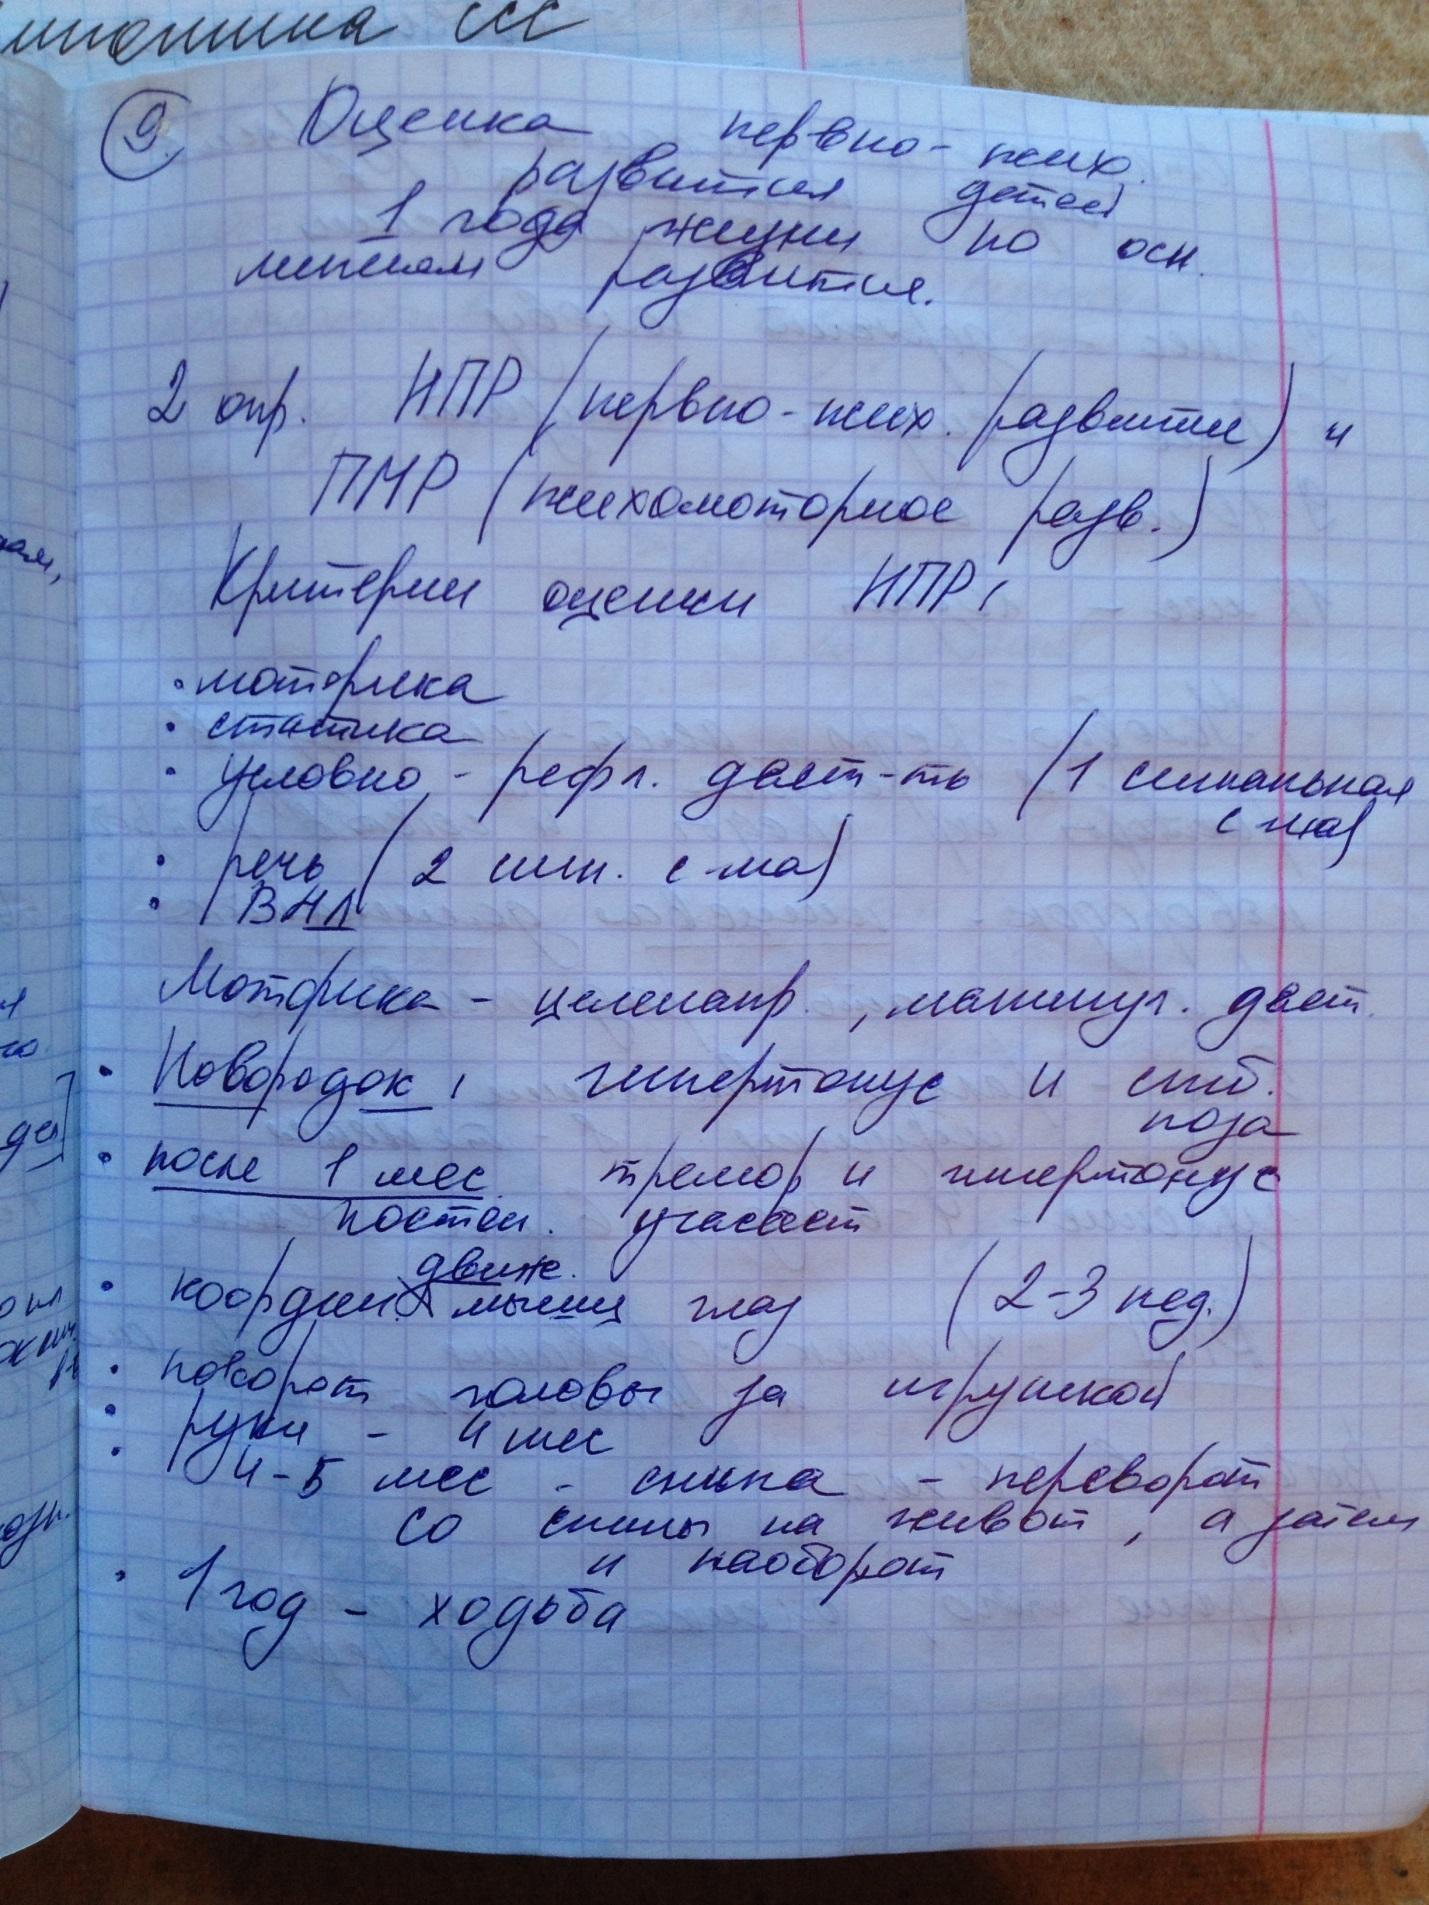 ССС
9.
Оценка нервно-псих.
развития детей
1 года жизни по осн.
линиям развития.
2 опр. НПР (нервно-псих. развитие) и
ПМР (психомоторное разв.)
Критерии оценки НПР:
• моторика
• статика
• условно-рефл. деят-ть (1 сигнальная
с-ма)
• речь (2 сигн. с-ма)
• ВНД
Моторика - целенапр., манипул. деят.
• Новорожд: гипертонус и сгиб.
поза
• после 1 мес. тремор и гипертонус
постеп. угасает
движ.
• координ. мышц глаз (2-3 нед.)
• поворот головы за игрушкой
• руки - 4 мес
• 4-5 мес - спина - переворот
со спины на живот, а затем
и наоборот
• 1 год - ходьба